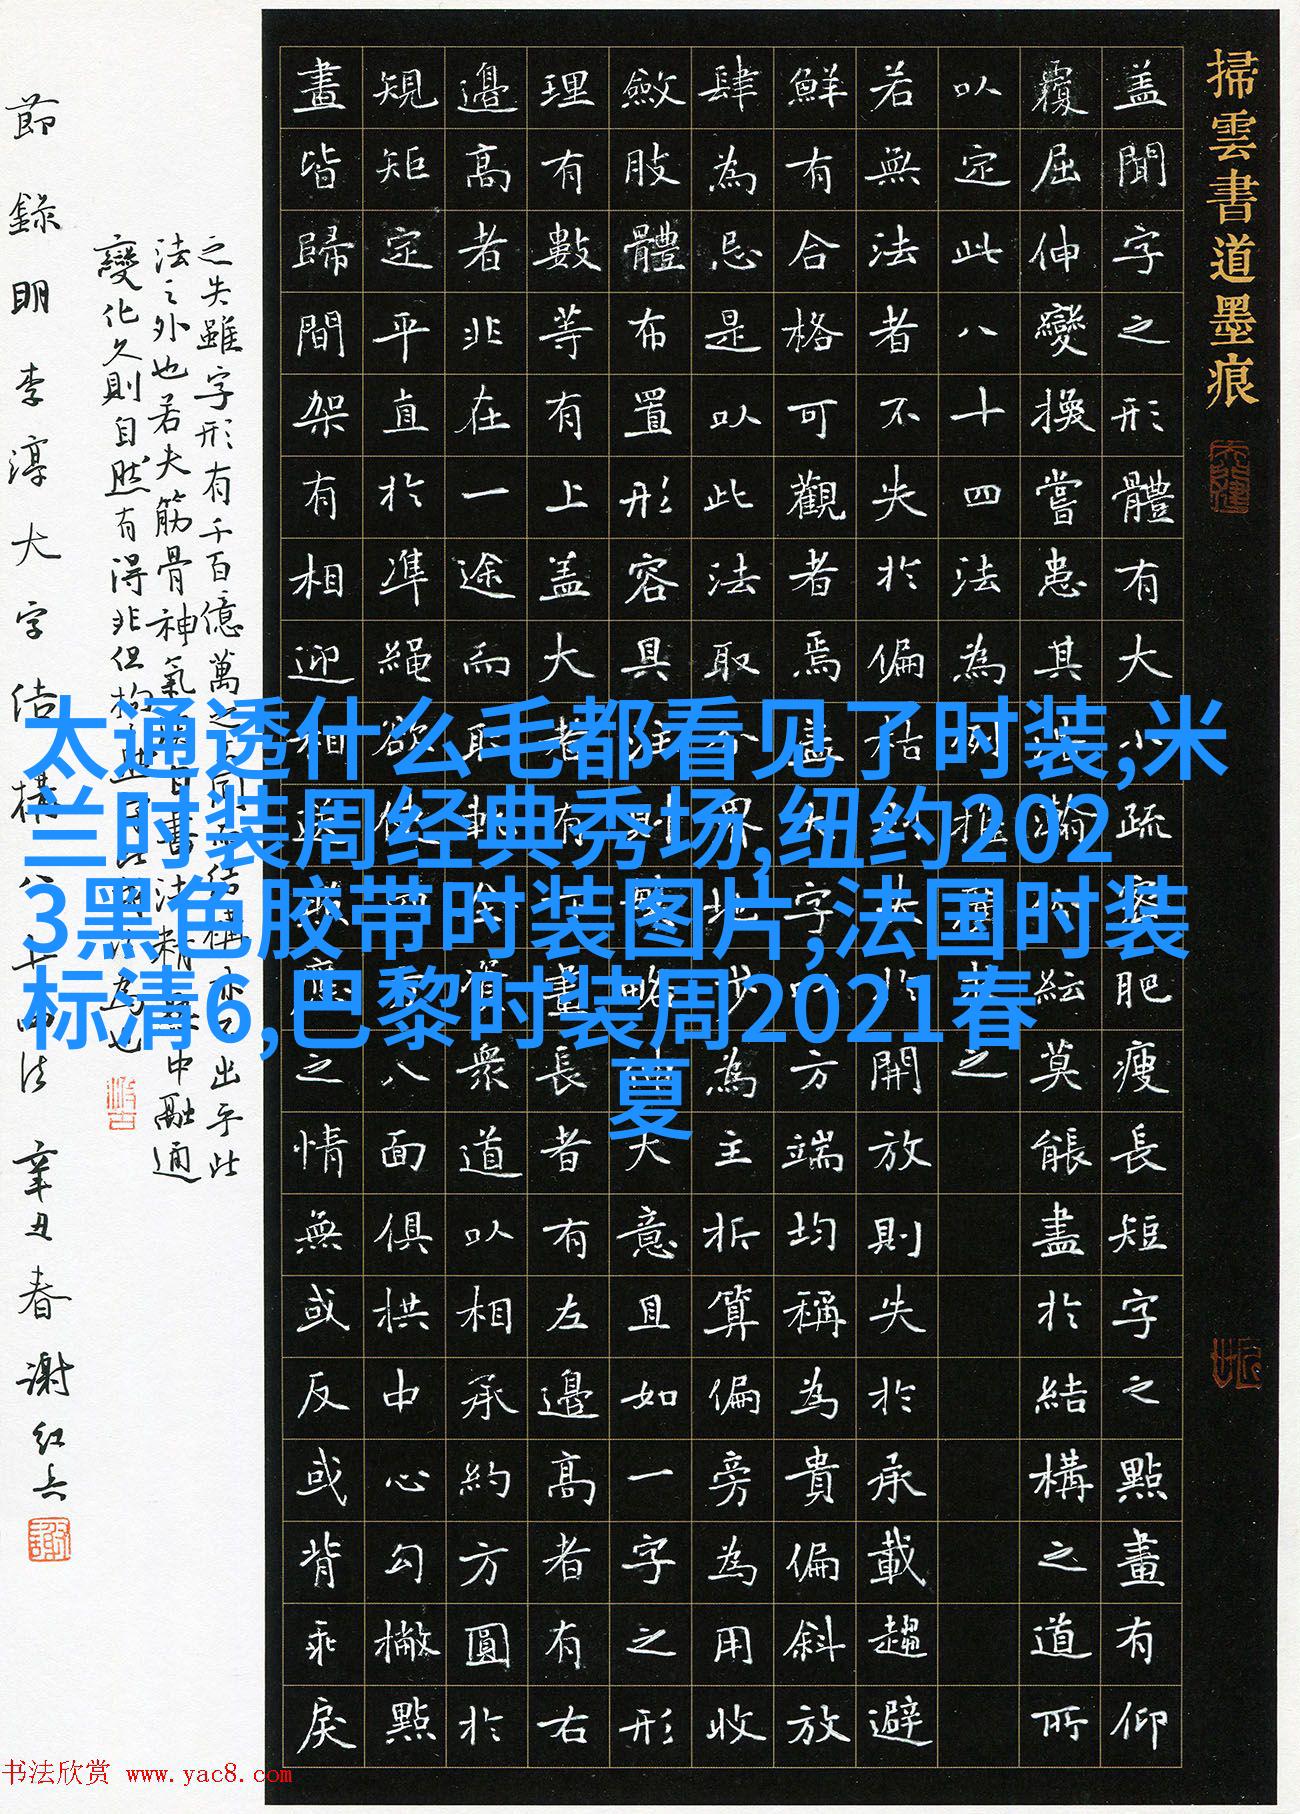 掃雲書道墨痕
盖聞字之形體有大小疏密肥瘦長短字之點畫有仰
覆屈伸變換嘗患其浩瀚紛紜莫能盡於結構之道所
以定此八十四法為例推類求之
若無法者不失於偏枯失於開放則失於承載趨避
鮮有合格可觀者焉盖夫字以方端均稱為貴偏斜放
肆為忌是以此法取分界地步為主折算偏旁為用收
斂肢體布置形容具准則要略大意且如一字之形
理有數等有上盖大者有下畫長者有左邊高者有右
邊高者非在一途而取軌資眾道以相承約方圓於
規矩定平直於準繩欲使四方八面俱拱中心勾撇點
畫皆歸間架有相迎相照應之情無或反或背乖戾
之失雖字形有千百億萬之不同而結構亦不出乎此
法之外也若夫筋骨神氣須自書法精熟中融通
變化久則自然有得非但拘此
節錄明李淳大字結構八十四法 辛丑春 謝紅兵
太通透什么毛都看见了时装,米
兰时装周经典秀场,纽约202
3黑色胶带时装图片,法国时装
标清6,巴黎时装周2021春
夏
书法欣赏 www.yac8.com